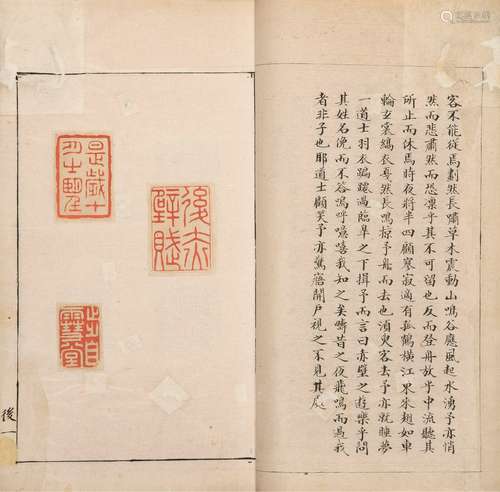 客不能從焉劃然長嘯草木震動山鳴谷應風起水湧予亦悄
然而悲肅然而恐凛乎其不可留也反而登舟放乎中流聽其
所止而休焉時夜將半四顧寥寂適有孤鶴橫江東來翅如車
輪玄裳縞衣戛然長鳴掠予舟而西也須臾客去予亦就睡夢
一道士羽衣蹁躚過臨皋之下揖予而言曰赤壁之遊樂乎問
其姓名俛而不答嗚呼噫嘻我知之矣疇昔之夜飛鳴而過我
者非子也耶道士顧笑予亦驚寤開戶視之不見其處
後赤壁賦
是歲十月之望
步自雪堂
後一